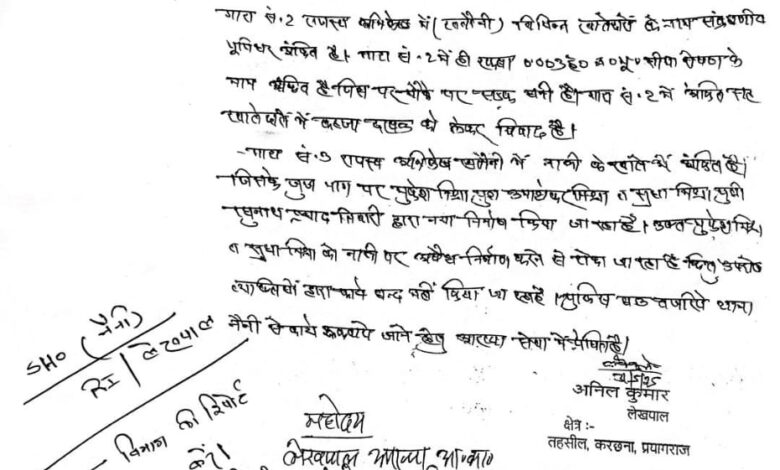 गाटा सं. 2 राजस्व अभिलेख में (खतौनी) विभिन्न खातेदारों के नाम संक्रमणीय
भूमिधर अंकित है। गाटा सं. 2 में ही रकबा 0.003 हे0 के
नाम अंकित है जिस पर मौके पर सड़क बनी है। गाटा सं. 2 में अंकित सह
खातेदारों में कब्जा दखल को लेकर विवाद है।
- गाटा सं. 3 राजस्व अभिलेख खतौनी में नाली के खाते में अंकित है।
जिसके जुज भाग पर मिश्रा पुत्र मिश्रा व सुधा मिश्रा पुत्री
रघुनाथ प्रसाद तिवारी द्वारा नया निर्माण किया जा रहा है। उक्त
व सुधा मिश्रा को नाली पर अवैध निर्माण करने से रोका जा रहा है किन्तु उपरोक्त
व्यक्तियों द्वारा कार्य बन्द नहीं किया जा रहा है। पुलिस बल थाना
नैनी से कार्य रुकवाये जाने हेतु आख्या सेवा में प्रेषित है।
SHO (नैनी)
RI / लेखपाल
अनिल कुमार
लेखपाल
क्षेत्र :-
तहसील, करछना, प्रयागराज
विभाग की रिपोर्ट
करें।
महोदय
लेखपाल आख्या